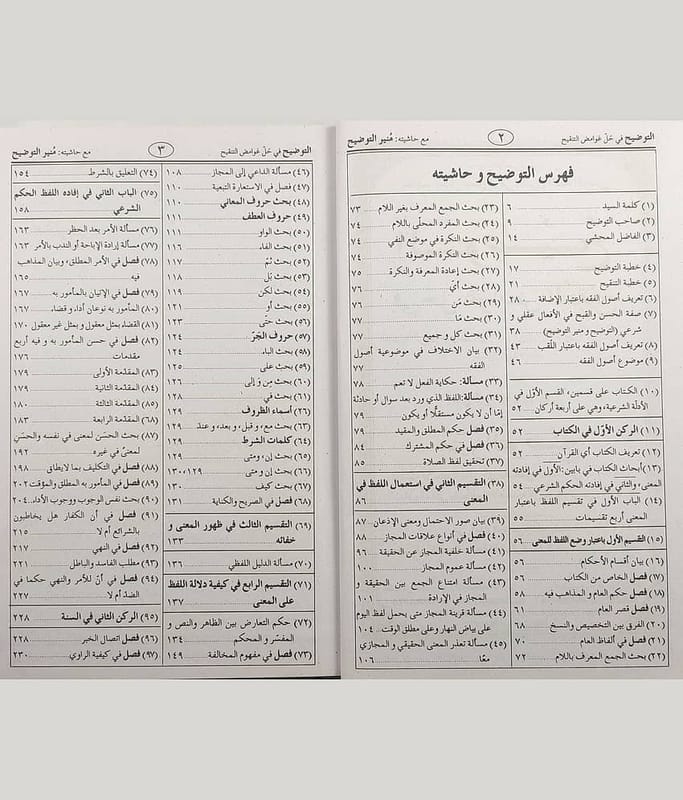 التوضيح في حلّ غوامض التنقيح
٢
مع حاشيته: مُنير التوضيح
فهرس التوضيح و حاشيته
(١) كلمة السيد ٦
(٢) صاحب التوضيح ٩
(٣) الفاضل المحشي ١٤
(٤) خطبة التوضيح ١٧
(٥) خطبة التنقيح ٢١
(٦) تعريف أصول الفقه باعتبار الإضافة ٢٨
(٧) صفة الحسن والقبح في الأفعال عقلي و
شرعي (التوضيح و منير التوضيح) ٣٨
(٨) تعريف أصول الفقه باعتبار اللّقب ٤٣
(٩) موضوع أصول الفقه ٤٦
(١٠) الكتاب على قسمين، القسم الأوّل في
الأدلّة الشرعية، وهي على أربعة أركان ٥٢
(١١) الركن الأوّل في الكتاب ٥٢
(١٢) تعريف الكتاب أي القرآن ٥٢
(١٣) أبحاث الكتاب في بابين: الأوّل في إفادته
المعنى، والثاني في إفادته الحكم الشرعي ٥٤
(١٤) الباب الأول في تقسيم اللفظ باعتبار
المعنى أربع تقسيمات ٥٥
(١٥) التقسيم الأول باعتبار وضع اللفظ للمعنى ٥٦
(١٦) بيان أقسام الأحكام ٥٦
(١٧) فصل الخاص من الكتاب ٥٦
(١٨) فصل حكم العام و المذاهب فيه ٥٨
(١٩) فصل قصر العام ٦١
(٢٠) الفرق بين التخصيص والنسخ ٦٨
(٢١) فصل في ألفاظ العام ٧٠
(٢٢) بحث الجمع المعرف باللام ٧٢
(٢٣) بحث الجمع المعرف بغير اللام ٧٣
(٢٤) بحث المفرد المحلّى باللام ٧٤
(٢٥) بحث النكرة في موضع النفي ٧٤
(٢٦) بحث النكرة الموصوفة ٧٤
(٢٧) بحث إعادة المعرفة والنكرة ٧٥
(٢٨) بحث أيّ ٧٦
(٢٩) بحث مَن ٧٦
(٣٠) بحث مَا ٧٧
(٣١) بحث كل و جميع ٧٧
(٣٢) بيان الاختلاف في موضوعية أصول
الفقه ٧٧
(٣٣) مسألة: حكاية الفعل لا تعم ٧٨
(٣٤) مسألة: اللفظ الذي ورد بعد سوال أو حادثة
إمّا أن لا يكون مستقلًا أو يكون ٧٩
(٣٥) فصل حكم المطلق والمقيد ٧٩
(٣٦) فصل في حكم المشترك ٨٤
(٣٧) تحقيق لفظ الصلاة ٨٥
(٣٨) التقسيم الثاني في استعمال اللفظ في
المعنى ٨٦
(٣٩) بيان صور الاحتمال ومعنى الإذعان ٨٧
(٤٠) فصل في أنواع علاقات المجاز ٨٨
(٤١) مسألة خلفية المجاز عن الحقيقة ٩٦
(٤٢) مسألة عموم المجاز ١٠٠
(٤٣) مسألة امتناع الجمع بين الحقيقة و
المجاز في الإرادة ١٠١
(٤٤) مسألة قرينة المجاز متى يحمل لفظ اليوم
على بياض النهار وعلى مطلق الوقت ١٠٤
(٤٥) مسألة تعذر المعنى الحقيقي و المجازي
معًا ١٠٦
التوضيح في حلّ غوامض التنقيح
٣
مع حاشيته: مُنير التوضيح
(٤٦) مسألة الداعي إلى المجاز ١٠٨
(٤٧) فصل في الاستعارة التبعية ١١٠
(٤٨) بحث حروف المعاني ١١٠
(٤٩) حروف العطف ١١١
(٥٠) بحث الواو ١١١
(٥١) بحث الفاء ١١٦
(٥٢) بحث ثمّ ١١٧
(٥٣) بحث بَل ١١٨
(٥٤) بحث لكن ١١٩
(٥٥) بحث أو ١٢١
(٥٦) بحث حتّى ١٢٣
(٥٧) حروف الجَرّ ١٢٤
(٥٨) بحث الباء ١٢٤
(٥٩) بحث على ١٢٥
(٦٠) بحث مِن وَ إلى ١٢٦
(٦١) بحث في ١٢٨
(٦٢) أسماء الظروف ١٢٩
(٦٣) بحث مع، و قبل، و بعد، و عند ١٢٩
(٦٤) كلمات الشرط ١٢٩
(٦٥) بحث إن، ومتى ١٢٩
(٦٦) بحث إن و متى ١٢٩، ١٣٠
(٦٧) بحث كيف ١٣٠
(٦٨) فصل في الصريح والكناية ١٣١
(٦٩) التقسيم الثالث في ظهور المعنى و
خفائه ١٣٣
(٧٠) مسألة الدليل اللفظي ١٣٦
(٧١) التقسيم الرابع في كيفية دلالة اللفظ
على المعنى ١٣٧
(٧٢) حكم التعارض بين الظاهر والنص و
المفسّر و المحكم ١٣٤
(٧٣) فصل في مفهوم المخالفة ١٤٩
(٧٤) التعليق بالشرط ١٥٤
(٧٥) الباب الثاني في إفاده اللفظ الحكم
الشرعي ١٥٨
(٧٦) مسألة الأمر بعد الحظر ١٦٣
(٧٧) مسألة إرادة الإباحة أو الندب بالأمر ١٦٣
(٧٨) فصل في الأمر المطلق، وبيان المذاهب
فيه ١٦٥
(٧٩) فصل في الإتيان بالمأمور به ١٦٧
(٨٠) المأمور به نوعان أداء و قضاء ١٦٧
(٨١) القضاء بمثل معقول و بمثل غير معقول ١٧٠
(٨٢) فصل في حسن المأمور به و فيه أربع
مقدمات ١٧٦
(٨٣) المقدمة الأولى ١٧٩
(٨٤) المقدمة الثانية ١٧٩
(٨٥) المقدمة الثالثة ١٨٠
(٨٦) المقدمة الرابعة ١٨٣
(٨٧) بحث الحسَن لمعنى في نفسه والحسَنِ
لمعنىً في غيره ١٩٢
(٨٨) فصل في التكليف بما لايطاق ١٩٨
(٨٩) فصل في المأمور به المطلق والمؤقت ٢٠٢
(٩٠) بحث نفس الوجوب ووجوب الأداء ٢٠٤
(٩١) فصل في أنّ الكفار هل يخاطبون
بالشرائع أم لا ٢١٥
(٩٢) فصل في النهي ٢١٧
(٩٣) مطلب الفاسد والباطل ٢٢١
(٩٤) فصل في أنّ للأمر والنهي حكما في
الضدّ أم لا ٢٢٧
(٩٥) الركن الثاني في السنة ٢٢٨
(٩٦) فصل اتصال الخبر ٢٢٨
(٩٧) فصل في كيفية الراوي ٢٣٠